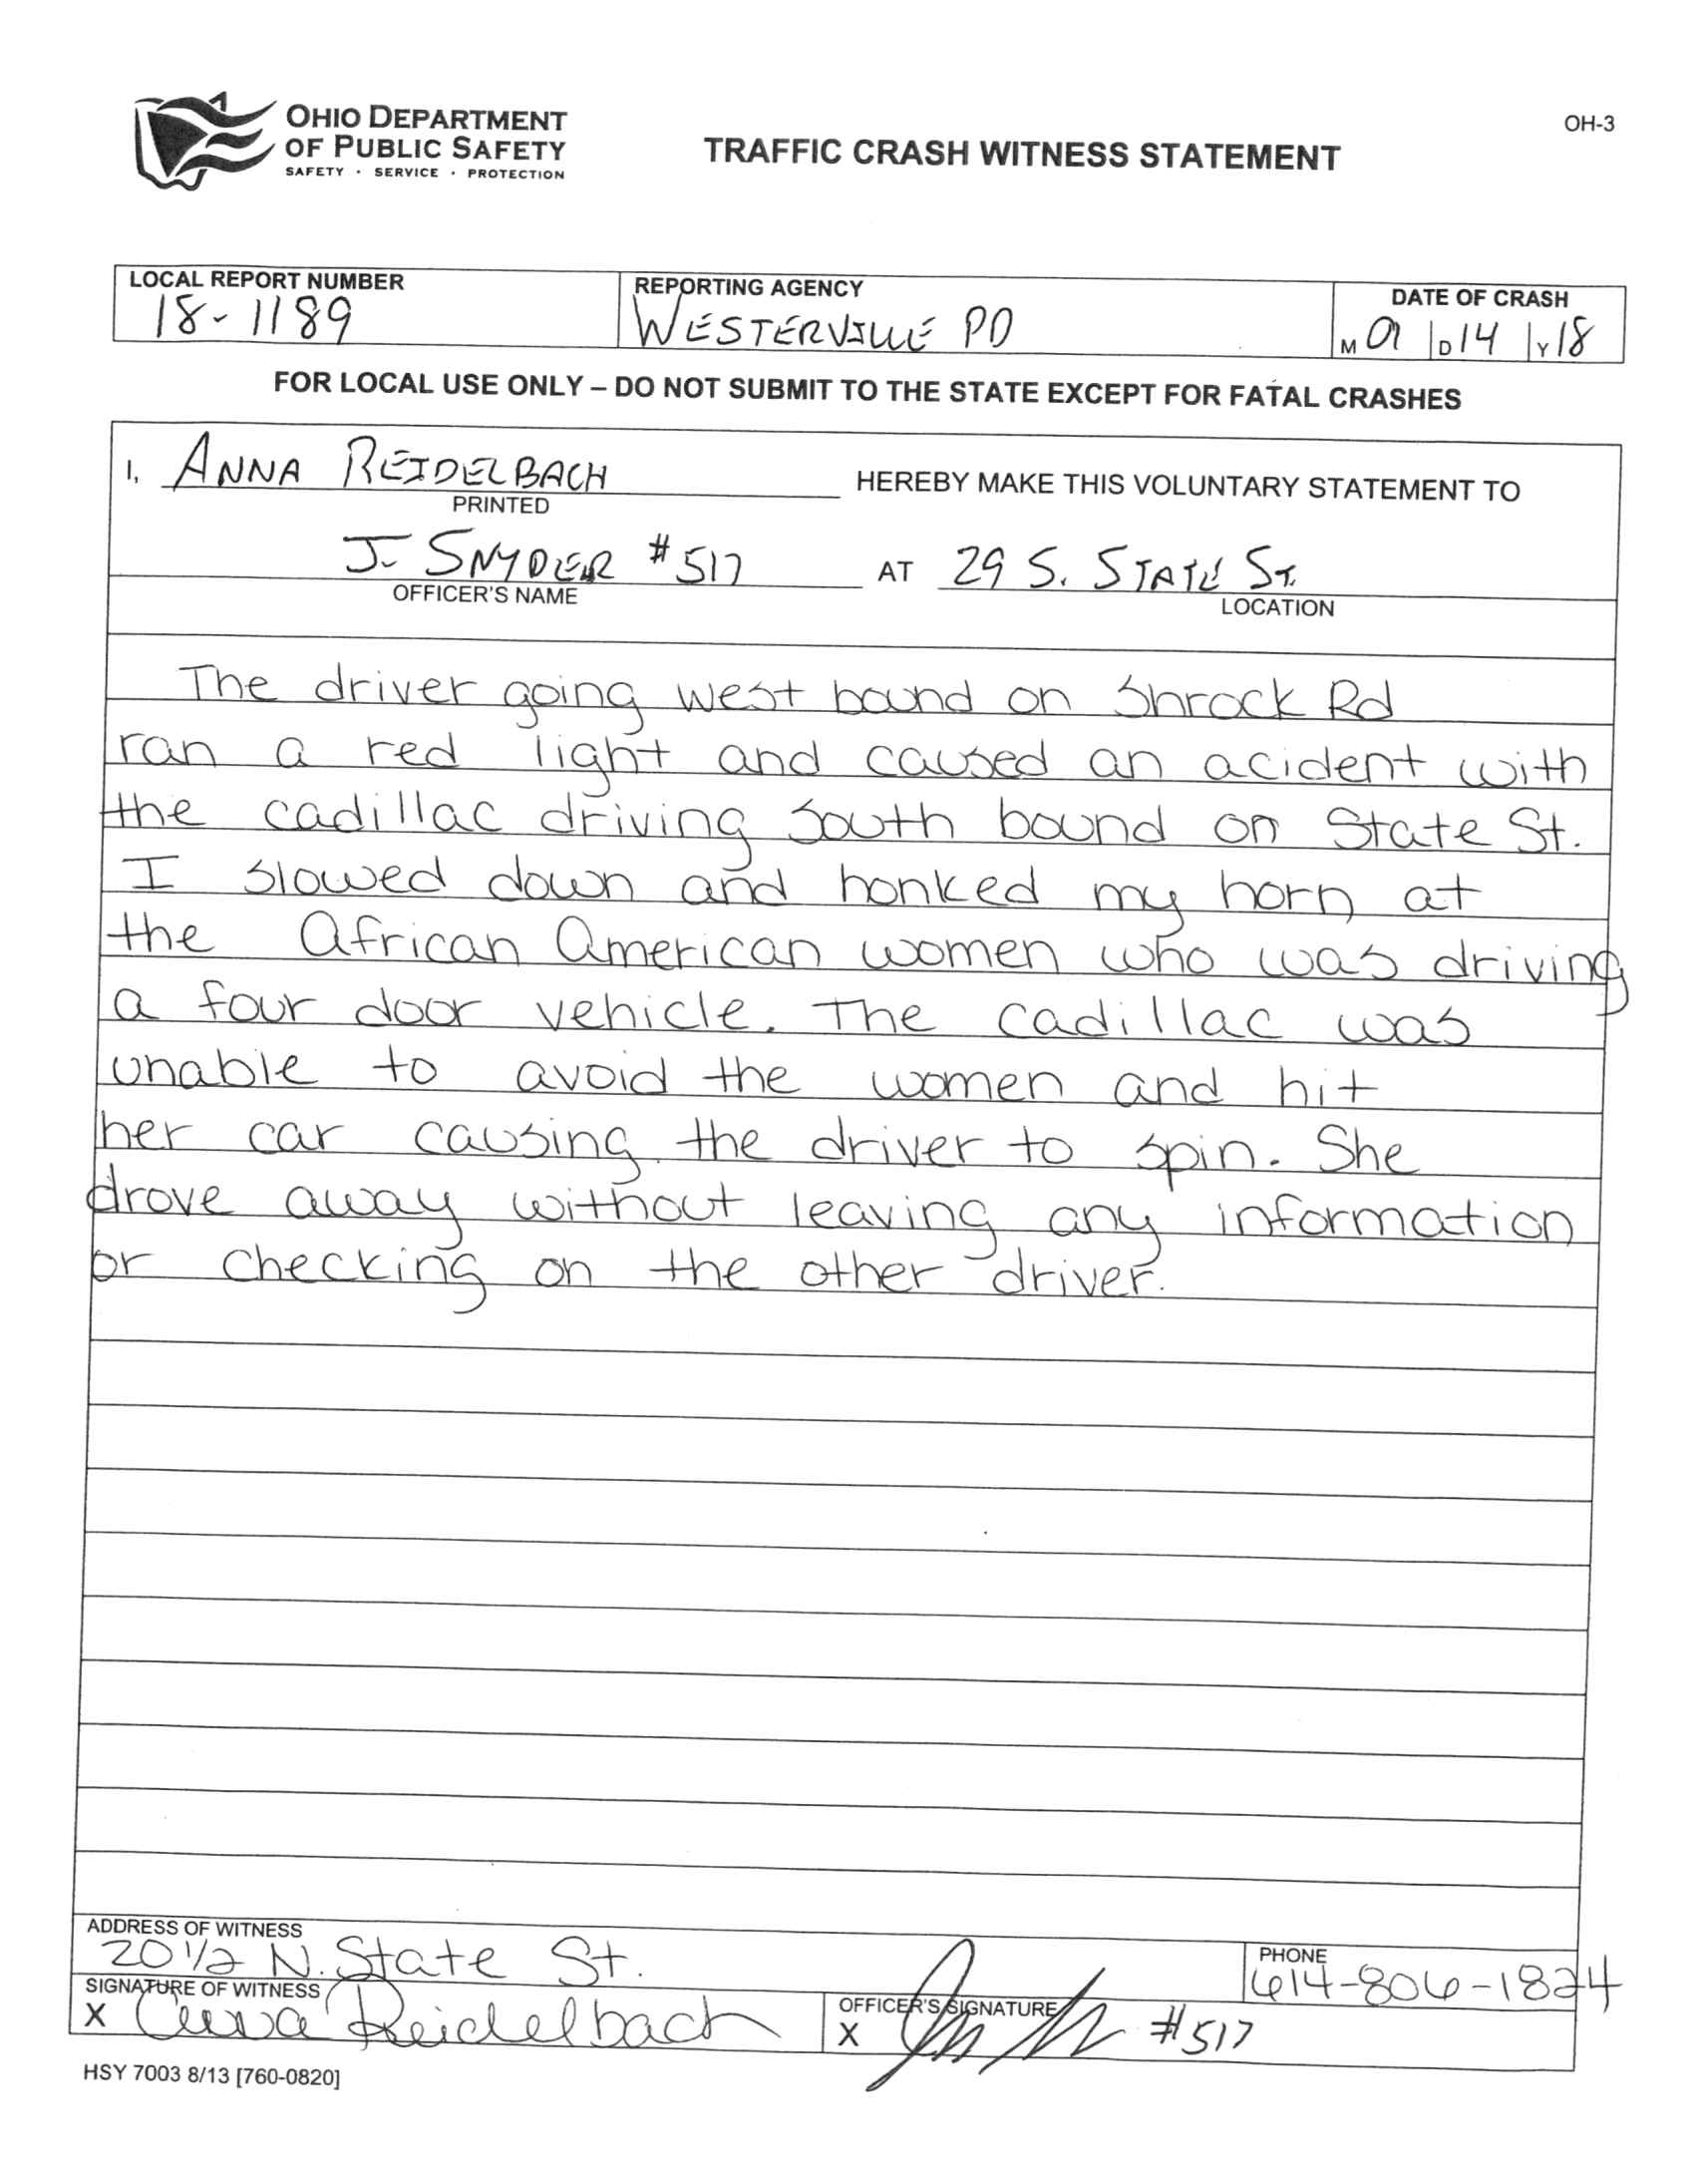 OHIO DEPARTMENT
OF PUBLIC SAFETY
SAFETY · SERVICE · PROTECTION
TRAFFIC CRASH WITNESS STATEMENT
OH-3
LOCAL REPORT NUMBER
18-1189
REPORTING AGENCY
WESTERVILLE PD
DATE OF CRASH
M 01 D 14 Y 18
FOR LOCAL USE ONLY – DO NOT SUBMIT TO THE STATE EXCEPT FOR FATAL CRASHES
I, ANNA REIDELBACH HEREBY MAKE THIS VOLUNTARY STATEMENT TO
PRINTED
J. SNYDER #517 AT 29 S. STATE ST.
OFFICER'S NAME LOCATION
The driver going west bound on Shrock Rd
ran a red light and caused an acident with
the cadillac driving South bound on State St.
I slowed down and honked my horn at
the African American women who was driving
a four door vehicle. The cadillac was
unable to avoid the women and hit
her car causing the driver to spin. She
drove away without leaving any information
or checking on the other driver.
ADDRESS OF WITNESS
20 1/2 N. State St.
PHONE
614-806-1824
SIGNATURE OF WITNESS
X Anna Reidelbach
OFFICER'S SIGNATURE
X #517
HSY 7003 8/13 [760-0820]